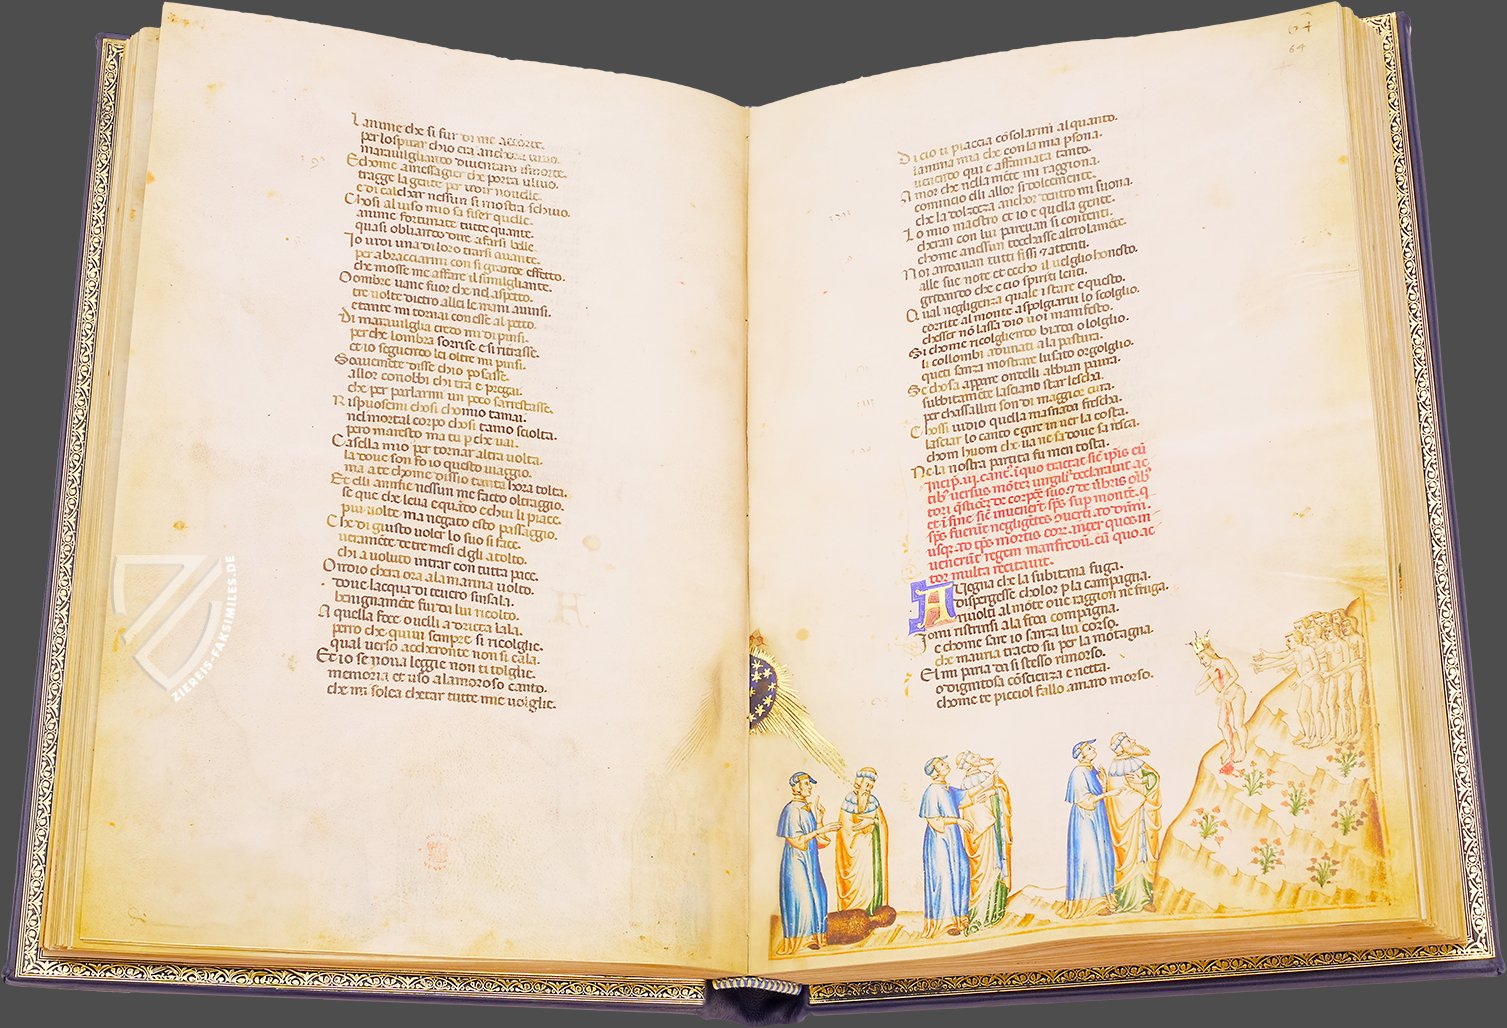 L anime che si fur di me accorte.
per lo spirar chio era anchora vivo.
maravigliando diventaro smorte.
E chome a messagier che porta ulivo.
tragge la gente per udir novelle.
e di calchar nessun si mostra schivo.
Chosi al viso mio sa fiser quelle.
anime fortunate tutte quante.
quasi obliando dire a farsi belle.
Io vidi una di loro trarsi avante.
per abracciarmi con si grande effetto.
che mosse me affare il simigliante.
O ombre vane fuor che nel aspetto.
tre volte dietro allei le mani avinsi.
e tante mi tornai con esse al petto.
Di maraviglia credo mi dipinsi.
per che lombra sorrise e si ritrasse.
et io seguendo lei oltre mi pinsi.
Soavemēte disse chio posasse.
allor conobbi chi era e pregai.
che per parlarmi un poco sarrestasse.
Rispuosemi chosi chomio tamai.
nel mortal corpo chosi tamo sciolta.
pero maresto ma tu p che vai.
Casella mio per tornar altra volta.
la dove son fo io questo viaggio.
ma a te chome dissio tanta hora tolta.
Et elli am̄e nessun me facto oltraggio.
se que che leva e quādo e chui li piace.
piu volte ma negato esto passaggio.
Che di giusto voler lo suo si face.
veramēte te tre mesi elgli a tolto.
chi a voluto intrar con tutta pace.
Ondio chera ora ala marina volto.
dove lacqua di tevero sinsala.
benignamēte fiu da lui ricolto.
A quella foce ovelli a dricta lala.
pero che quivi sempre si ricolglie.
qual verso accheronte non si cala.
Et io se nova legge non ti tolglie.
memoria et uso alamoroso canto.
che mi solea chetar tutte mie volglie.
64
64
Di cio ti piaccia cōsolarmi alquanto.
lanima mia che con la mia psona.
venendo qui e affannata tanto.
Amor che nella mēte mi raggiona.
comincio elli allor si dolcemēte.
che la dolzezza anchor dentro mi suona.
Lo mio maestro et io e quella gente.
cheran con lui parevan si contenti.
chome a nessun tocchasse altro la mēte.
Noi andavan tutti fissi & attenti.
alle sue note et eccho il velglio honesto.
gridando che e cio spiriti lenti.
Qual negligenza quale istare e questo.
corrite al monte aspolgiarvi lo scolglio.
chesser nō lassa dio voi manifesto.
Si chome ricolgliendo biada o lolglio.
li collombi adunati a la pastura.
queti sanza mostrare lusato orgolglio.
Se chosa appare ondelli abbian paura.
subbitamēte lasciano star lescha.
per chassaliti son da maggior cura.
Chossi vidio quella masnada frescha.
lasciar lo canto e gire in ver la costa.
chom huom che va ne sa dove sa resca.
Ne la nostra partita fu men tosta.
Incip. iii. canc̄. ī quo tractat
tor multa recitavit.
Avegna che la subitana fuga.
dispergesse cholor p la campagna.
rivolti al mōte ove raggion ne fruga.
Io mi ristrinsi ala fida compagna.
e chome sare io sanza lui corso.
che mavria tracto su per la mōtagna.
El mi paria da si stesso rimorso.
o dignitosa cōscienza e netta.
chome te picciol fallo amaro morso.
ZIEREIS-FAKSIMILES.DE